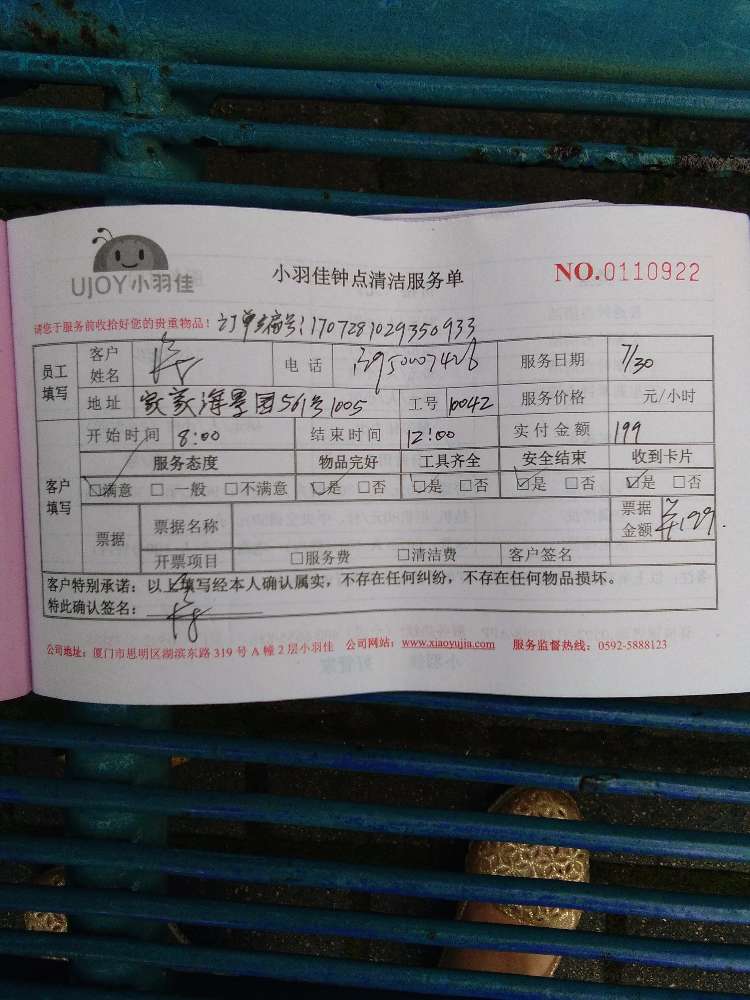 UJOY小羽佳
小羽佳钟点清洁服务单
NO.0110922
请您于服务前收拾好您的贵重物品! 订单编号:1707281029350933
员工填写 客户姓名 电话 服务日期 7/30
地址 家家海景园561号1005 工号 10042 服务价格 元/小时
客户填写 开始时间 8:00 结束时间 12:00 实付金额 199
服务态度 物品完好 工具齐全 安全结束 收到卡片
☑满意 □一般 □不满意 ☑是 □否 ☑是 □否 ☑是 □否 ☑是 □否
票据 票据名称 票据金额 199.
开票项目 □服务费 □清洁费 客户签名
客户特别承诺:以上填写经本人确认属实,不存在任何纠纷,不存在任何物品损坏。
特此确认签名:
公司地址:厦门市思明区湖滨东路319号A幢2层小羽佳 公司网站:www.xiaoyujia.com 服务监督热线:0592-5888123